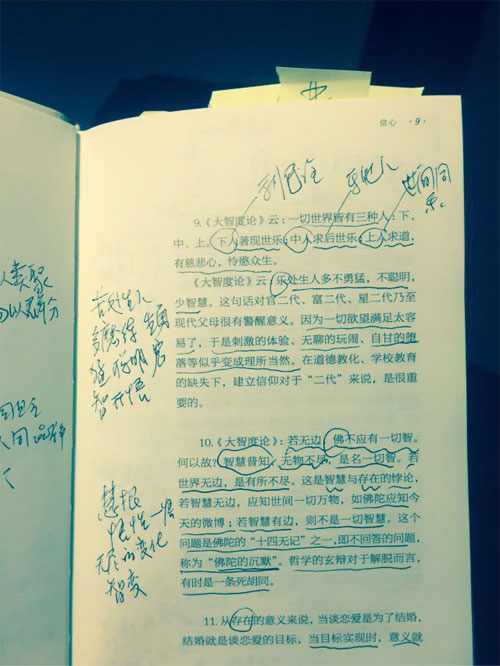 信心 ·9·
9.《大智度论》云：一切世界皆有三种人：下、
中、上。下人著现世乐；中人求后世乐；上人求道，
有慈悲心，怜愍众生。
《大智度论》云：乐处生人多不勇猛，不聪明，
少智慧。这句话对官二代、富二代、星二代乃至
现代父母很有警醒意义。因为一切欲望满足太容
易了，于是刺激的体验、无聊的玩闹、自甘的堕
落等似乎变成理所当然。在道德教化、学校教育
的缺失下，建立信仰对于“二代”来说，是很重
要的。
10.《大智度论》：若无边，佛不应有一切智。
何以故？智慧普知，无物不尽，是名一切智。若
世界无边，是有所不尽。这是智慧与存在的悖论，
若智慧无边，应知世间一切万物，如佛陀应知今
天的微博；若智慧有边，则不是一切智慧。这个
问题是佛陀的“十四无记”之一，即不回答的问题，
称为“佛陀的沉默”。哲学的玄辩对于解脱而言，
有时是一条死胡同。
11. 从存在的意义来说，当谈恋爱是为了结婚，
结婚就是谈恋爱的目标，当目标实现时，意义就
苦处生人
智开悟
慧根
无尽的变化
智变